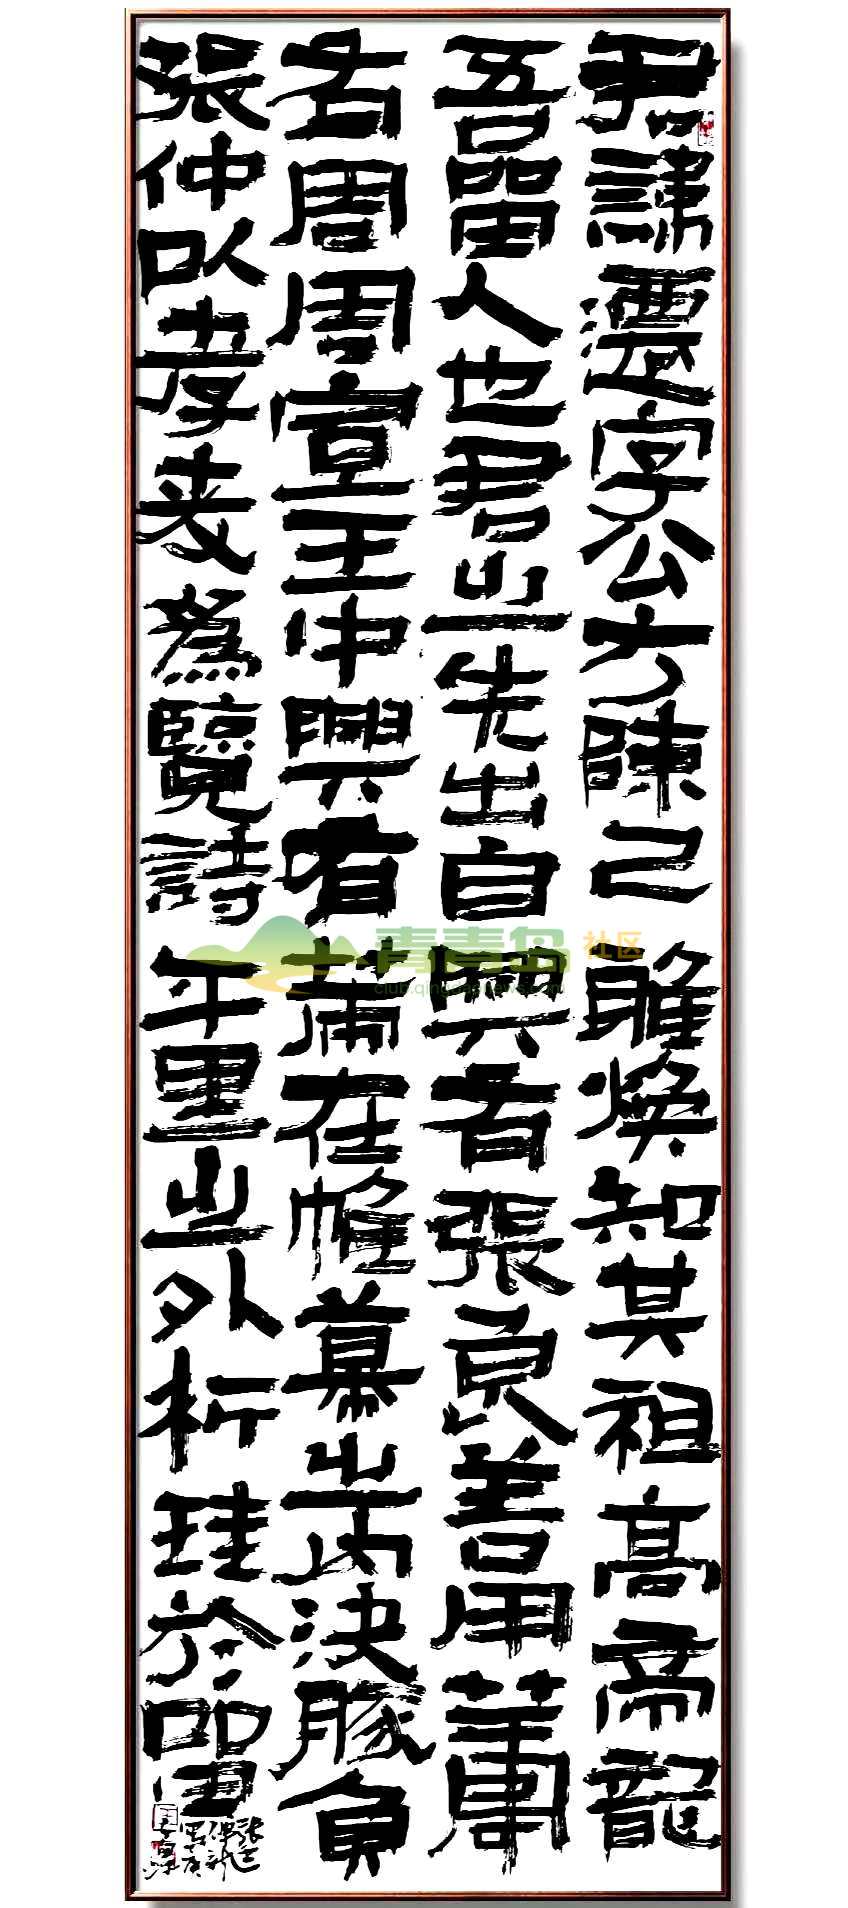 君諱遷字公方陳己雅煥知其祖高帝龍
吾留人也君之先出自興有張良善用籌
有周周宣王中興有策在帷幕之內決勝負
張仲以孝友為覽詩千里之外析珪於留
青青岛社区
club.qingdaonews.com